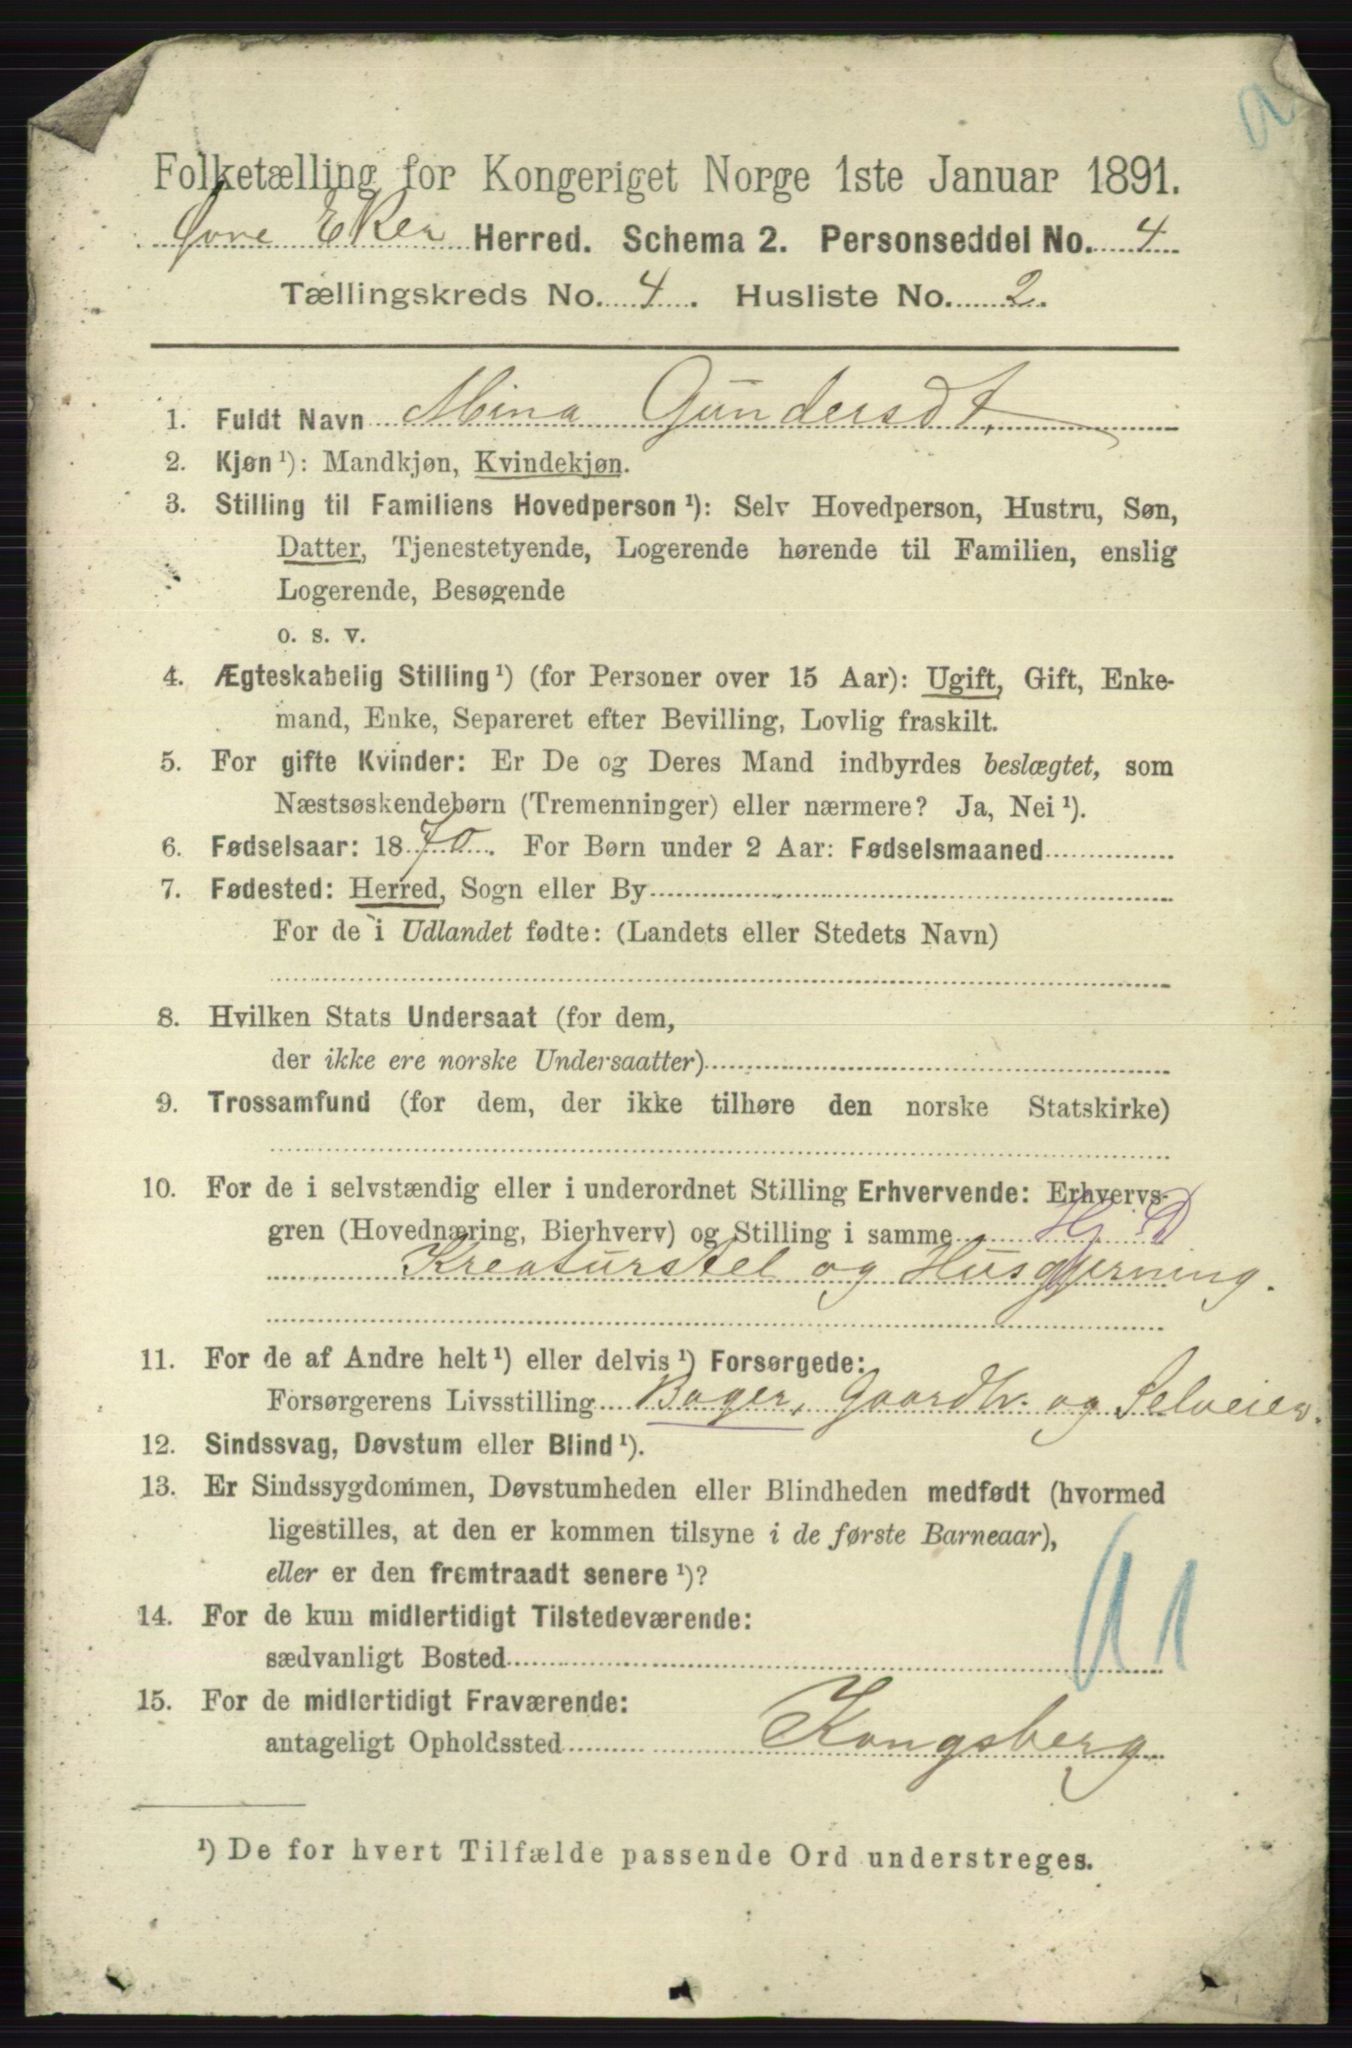 Folketælling for Kongeriget Norge 1ste Januar 1891.
Øvre Eker Herred. Schema 2. Personseddel No. 4
Tællingskreds No. 4. Husliste No. 2.
1. Fuldt Navn Mina Gundersdt.
2. Kjøn ¹): Mandkjøn, Kvindekjøn.
3. Stilling til Familiens Hovedperson ¹): Selv Hovedperson, Hustru, Søn,
Datter, Tjenestetyende, Logerende hørende til Familien, enslig
Logerende, Besøgende
o. s. v.
4. Ægteskabelig Stilling ¹) (for Personer over 15 Aar): Ugift, Gift, Enke-
mand, Enke, Separeret efter Bevilling, Lovlig fraskilt.
5. For gifte Kvinder: Er De og Deres Mand indbyrdes beslægtet, som
Næstsøskendebørn (Tremenninger) eller nærmere? Ja, Nei ¹).
6. Fødselsaar: 1870. For Børn under 2 Aar: Fødselsmaaned
7. Fødested: Herred, Sogn eller By
For de i Udlandet fødte: (Landets eller Stedets Navn)
8. Hvilken Stats Undersaat (for dem,
der ikke ere norske Undersaatter)
9. Trossamfund (for dem, der ikke tilhøre den norske Statskirke)
10. For de i selvstændig eller i underordnet Stilling Erhvervende: Erhvervs-
gren (Hovednæring, Bierhverv) og Stilling i samme H. D
Kreaturstel og Husgjerning.
11. For de af Andre helt ¹) eller delvis ¹) Forsørgede:
Forsørgerens Livsstilling Bager, Gaardbr. og Selveier.
12. Sindssvag, Døvstum eller Blind ¹).
13. Er Sindssygdommen, Døvstumheden eller Blindheden medfødt (hvormed
ligestilles, at den er kommen tilsyne i de første Barneaar),
eller er den fremtraadt senere ¹)?
14. For de kun midlertidigt Tilstedeværende:
sædvanligt Bosted
15. For de midlertidigt Fraværende:
antageligt Opholdssted Kongsberg
¹) De for hvert Tilfælde passende Ord understreges.